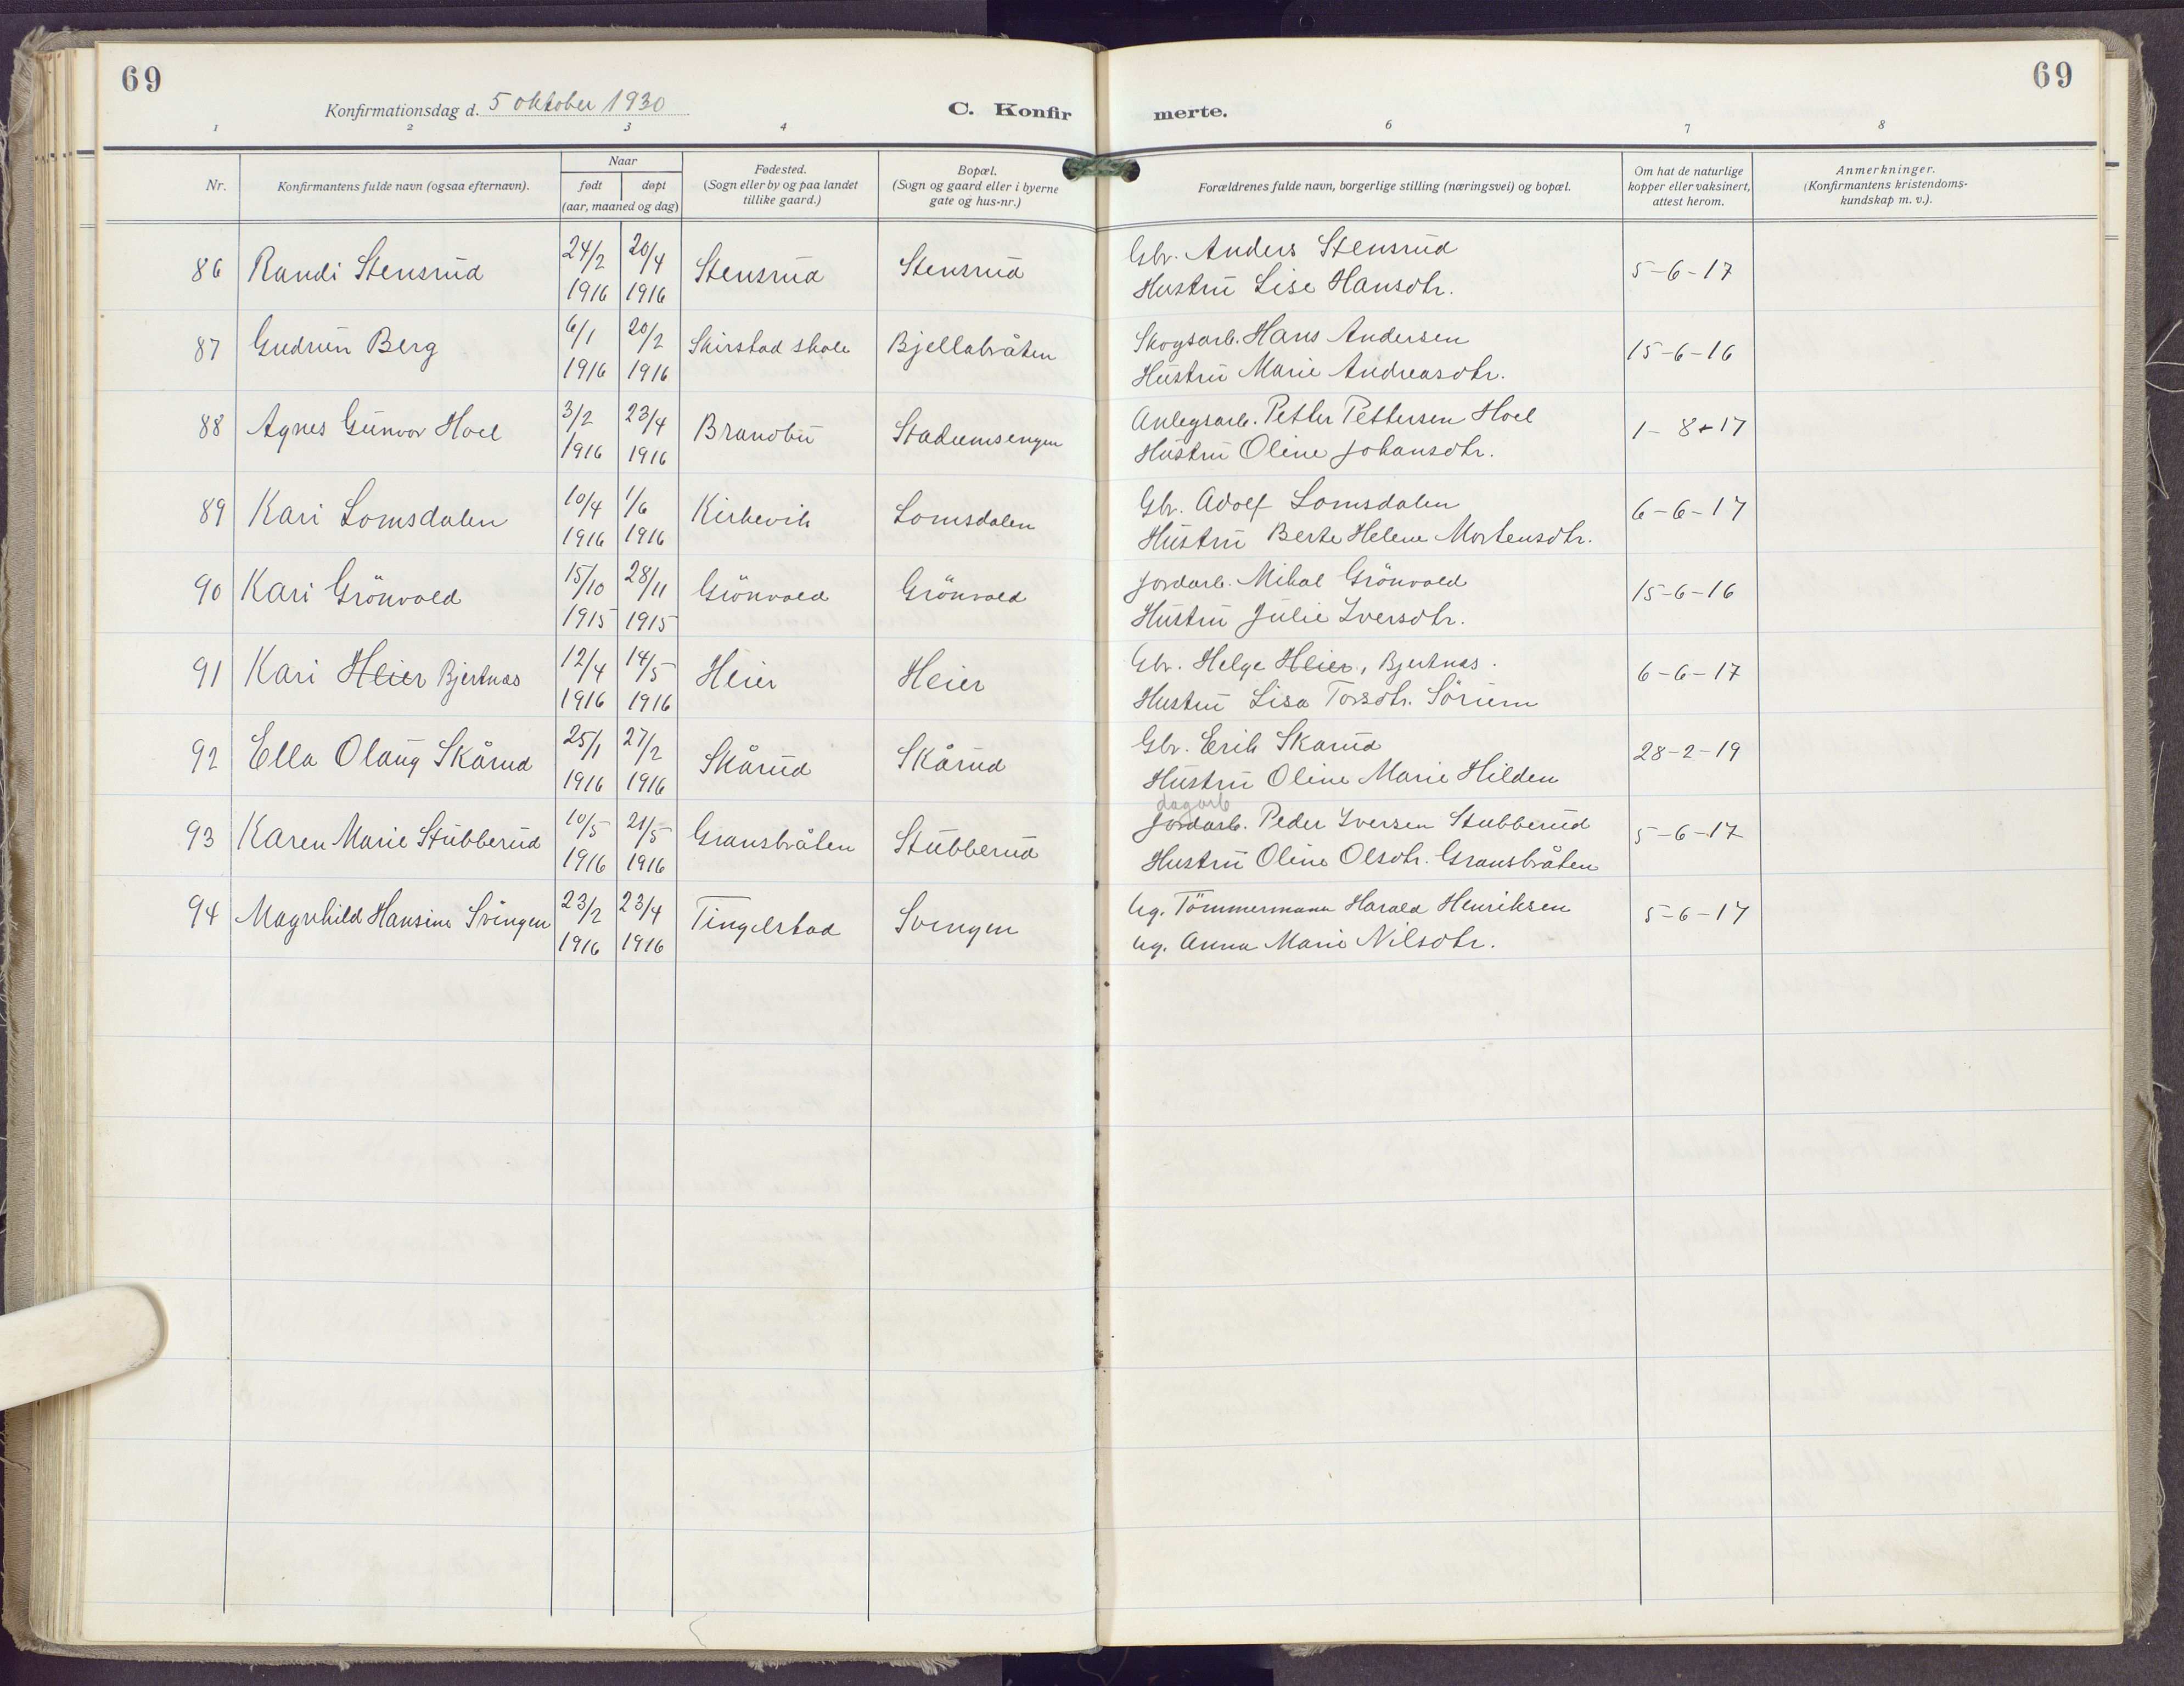 69
69
Konfirmationsdag d. 5 oktober 1930
C. Konfir merte.
1 2 3 4 6 7 8
Nr.
Konfirmantens fulde navn (ogsaa efternavn).
Naar
født døpt
(aar, maaned og dag)
Fødested.
(Sogn eller by og paa landet
tillike gaard.)
Bopæl.
(Sogn og gaard eller i byerne
gate og hus-nr.)
Forældrenes fulde navn, borgerlige stilling (næringsvei) og bopæl.
Om hat de naturlige
kopper eller vaksinert,
attest herom.
Anmerkninger.
(Konfirmantens kristendoms-
kundskap m. v.).
86 Randi Stensrud 24/2 20/4 Stensrud Stensrud Gbr. Anders Stensrud 5-6-17
1916 1916 Hustru Lise Hansdtr.
87 Gudrun Berg 6/1 20/2 Skirstad skole Bjellabråten Skogsarb. Hans Andersen 15-6-16
1916 1916 Hustru Marie Andreasdtr.
88 Agnes Gunvor Hoel 3/2 23/4 Brandbu Stadumsengen Anlegsarb. Petter Pettersen Hoel 1-8-17
1916 1916 Hustru Oline Johansdtr.
89 Kari Lomsdalen 10/4 1/6 Kirkevik Lomsdalen Gbr. Adolf Lomsdalen 6-6-17
1916 1916 Hustru Berte Helene Mortensdtr.
90 Kari Grönvold 15/10 28/11 Grönvold Grönvold Jordarb. Mikal Grönvold 15-6-16
1915 1915 Hustru Julie Iversdtr.
91 Kari Heier Bjertnæs 12/4 14/5 Heier Heier Gbr. Helge Heier, Bjertnæs. 6-6-17
1916 1916 Hustru Lisa Torsdtr. Sörum
92 Ella Olaug Skårud 25/1 27/2 Skårud Skårud Gbr. Erik Skarud 28-2-19
1916 1916 Hustru Oline Marie Hilden
dagarb
93 Karen Marie Stubberud 10/5 21/5 Gransbråten Stubberud Jordarb. Peder Iversen Stubberud 5-6-17
1916 1916 Hustru Oline Olsdtr. Gransbråten
94 Magnhild Hansine Svingen 23/2 23/4 Tingelstad Svingen Ug. Tömmermann Harald Henriksen 5-6-17
1916 1916 Ug. Anna Marie Nilsdtr.